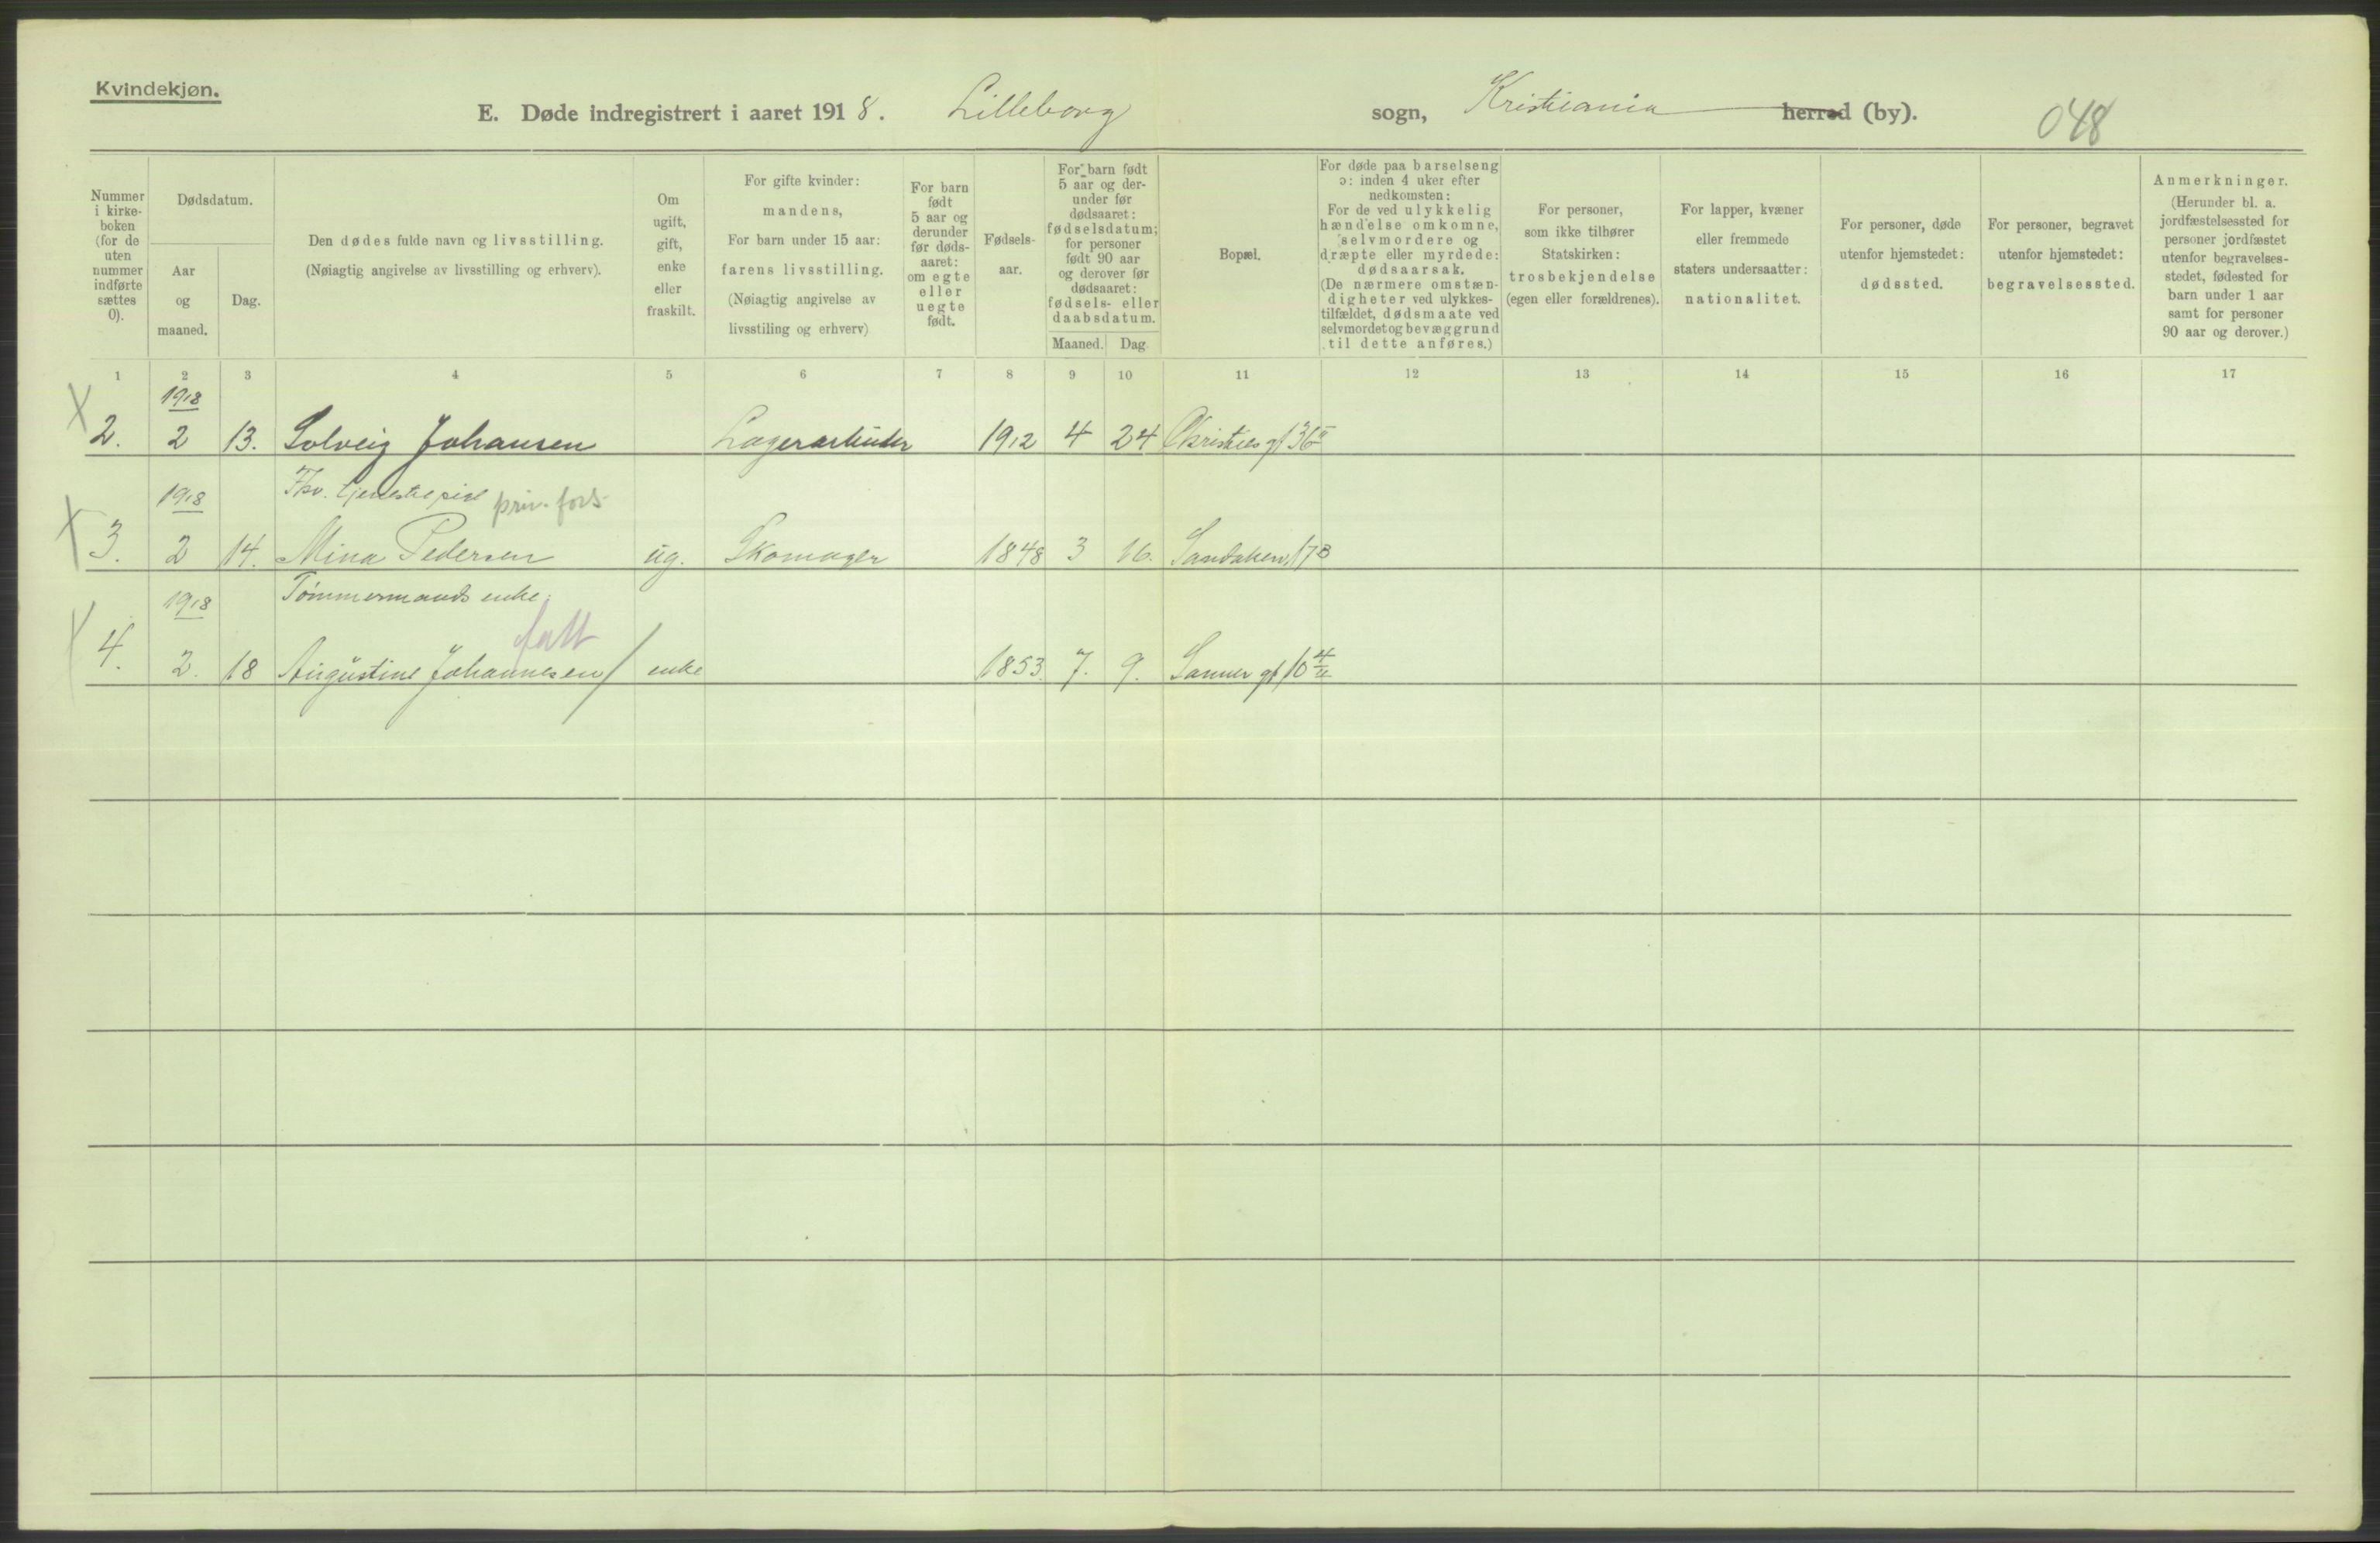 Kvindekjøn.
E. Døde indregistrert i aaret 1918. Lilleborg sogn, Kristiania herred (by). 048
Nummer i kirke- boken (for de uten nummer indførte sættes 0).
Dødsdatum.
Aar og maaned.
Dag.
Den dødes fulde navn og livsstilling.
(Nøiagtig angivelse av livsstilling og erhverv).
Om ugift, gift, enke eller fraskilt.
For gifte kvinder: mandens,
For barn under 15 aar: farens livsstilling.
(Nøiagtig angivelse av livsstiling og erhverv)
For barn født 5 aar og derunder før døds- aaret: om egte eller uegte født.
Fødsels- aar.
For barn født 5 aar og der- under før dødsaaret: fødselsdatum; for personer født 90 aar og derover før dødsaaret: fødsels- eller daabsdatum.
Maaned. Dag.
Bopæl.
For døde paa barselseng ɔ: inden 4 uker efter nedkomsten:
For de ved ulykkelig hændelse omkomne, selvmordere og dræpte eller myrdede: dødsaarsak.
(De nærmere omstæn- digheter ved ulykkes- tilfældet, dødsmaate ved selvmordet og bevæggrund til dette anføres.)
For personer, som ikke tilhører Statskirken: trosbekjendelse (egen eller forældrenes).
For lapper, kvæner eller fremmede staters undersaatter: nationalitet.
For personer, døde utenfor hjemstedet: dødssted.
For personer, begravet utenfor hjemstedet: begravelsessted.
Anmerkninger.
(Herunder bl. a. jordfæstelsessted for personer jordfæstet utenfor begravelses- stedet, fødested for barn under 1 aar samt for personer 90 aar og derover.)
1 2 3 4 5 6 7 8 9 10 11 12 13 14 15 16 17
1918
X 2. 2 13. Solveig Johansen Lagerarbeider 1912 4 24 Christies gt 36 II
1918 Fhv. tjenestepike priv. fors.
X 3. 2 14. Mina Pedersen ug. Skomager 1848 3 16. Sandakerv. 17B
1918 Tømmermands enke.
fatt
X 4. 2. 18 Augustine Johannesen / enke 1853. 7. 9. Sanner gt 10